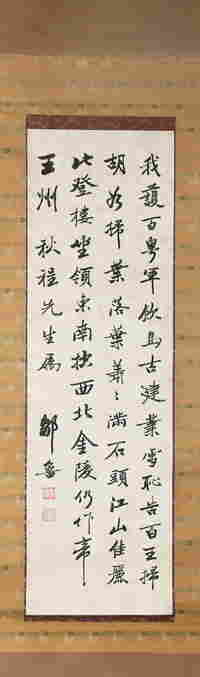 我護百粵軍飲馬古建業雪恥告百王掃
胡如掃葉落葉萋〻滿石頭江山佳麗
此登樓坐領東南控西北金陵仍作帝
王州 秋程先生属
鄒魯